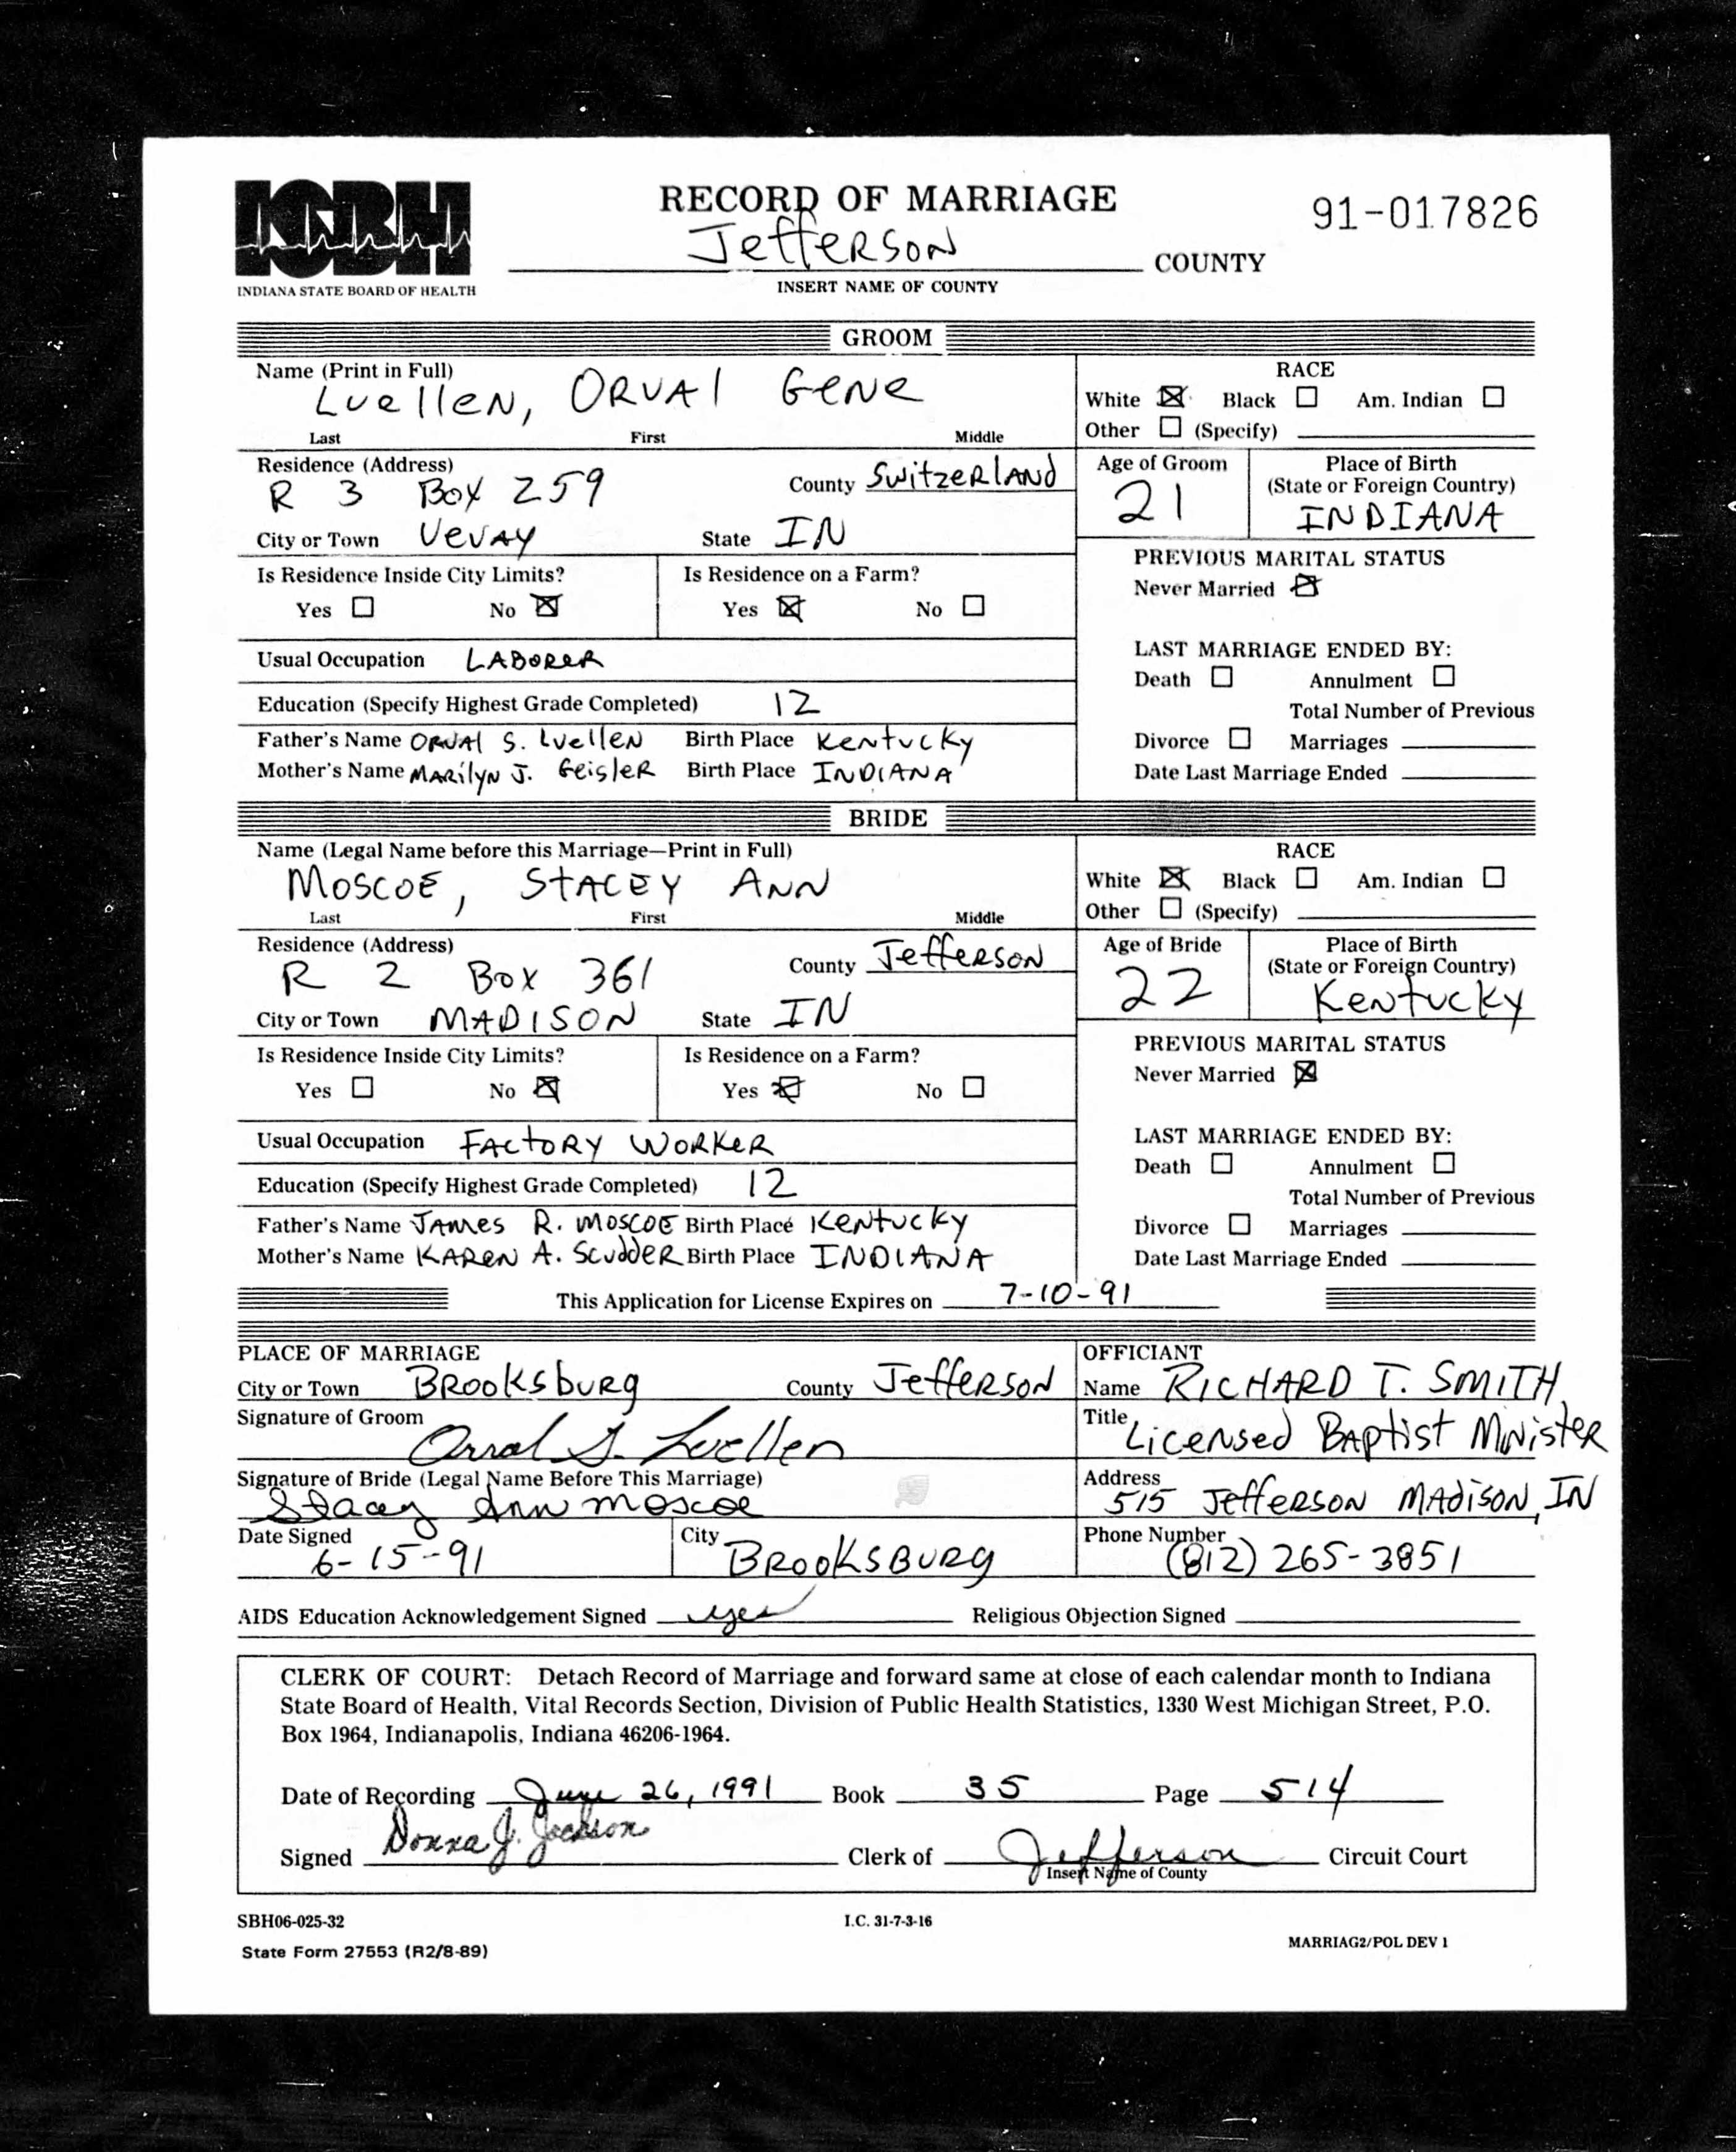 ISBH
INDIANA STATE BOARD OF HEALTH
RECORD OF MARRIAGE
91-017826
Jefferson COUNTY
INSERT NAME OF COUNTY
GROOM
Name (Print in Full)
Luellen, ORVAl GeNe
Last First Middle
RACE
White ☒ Black ☐ Am. Indian ☐
Other ☐ (Specify)
Residence (Address)
R 3 Box 259 County SwitzeRlANd
City or Town VeVAY State IN
Age of Groom
21
Place of Birth
(State or Foreign Country)
INDIANA
Is Residence Inside City Limits?
Yes ☐ No ☒
Is Residence on a Farm?
Yes ☒ No ☐
PREVIOUS MARITAL STATUS
Never Married ☒
Usual Occupation LABoReR
Education (Specify Highest Grade Completed) 12
Father's Name ORVAl S. LuelleN Birth Place KeNtucky
Mother's Name MARilyN J. GeisleR Birth Place INDIANA
LAST MARRIAGE ENDED BY:
Death ☐ Annulment ☐
Total Number of Previous
Divorce ☐ Marriages
Date Last Marriage Ended
BRIDE
Name (Legal Name before this Marriage—Print in Full)
MOSCOE, STACEY ANN
Last First Middle
RACE
White ☒ Black ☐ Am. Indian ☐
Other ☐ (Specify)
Residence (Address)
R 2 Box 361 County JeffeRSoN
City or Town MADISON State IN
Age of Bride
22
Place of Birth
(State or Foreign Country)
KeNtucky
Is Residence Inside City Limits?
Yes ☐ No ☒
Is Residence on a Farm?
Yes ☒ No ☐
PREVIOUS MARITAL STATUS
Never Married ☒
Usual Occupation FACtORY WORKeR
Education (Specify Highest Grade Completed) 12
Father's Name JAMes R. MOSCOE Birth Place KeNtucky
Mother's Name KAReN A. ScuddeR Birth Place INDIANA
LAST MARRIAGE ENDED BY:
Death ☐ Annulment ☐
Total Number of Previous
Divorce ☐ Marriages
Date Last Marriage Ended
This Application for License Expires on 7-10-91
PLACE OF MARRIAGE
City or Town BRooksbuRg County JeffeRSoN
Signature of Groom
Orval G. Luellen
Signature of Bride (Legal Name Before This Marriage)
Stacey Ann Moscoe
Date Signed
6-15-91
City
BRooKSBURg
OFFICIANT
Name RICHARD T. SMITH
Title Licensed BAptist Minister
Address
515 JeffeRsoN MAdisoN, IN
Phone Number
(812) 265-3851
AIDS Education Acknowledgement Signed yes Religious Objection Signed
CLERK OF COURT: Detach Record of Marriage and forward same at close of each calendar month to Indiana
State Board of Health, Vital Records Section, Division of Public Health Statistics, 1330 West Michigan Street, P.O.
Box 1964, Indianapolis, Indiana 46206-1964.
Date of Recording June 26, 1991 Book 35 Page 514
Signed Donna J. Jackson Clerk of Jefferson Circuit Court
Insert Name of County
SBH06-025-32
I.C. 31-7-3-16
State Form 27553 (R2/8-89)
MARRIAG2/POL DEV 1